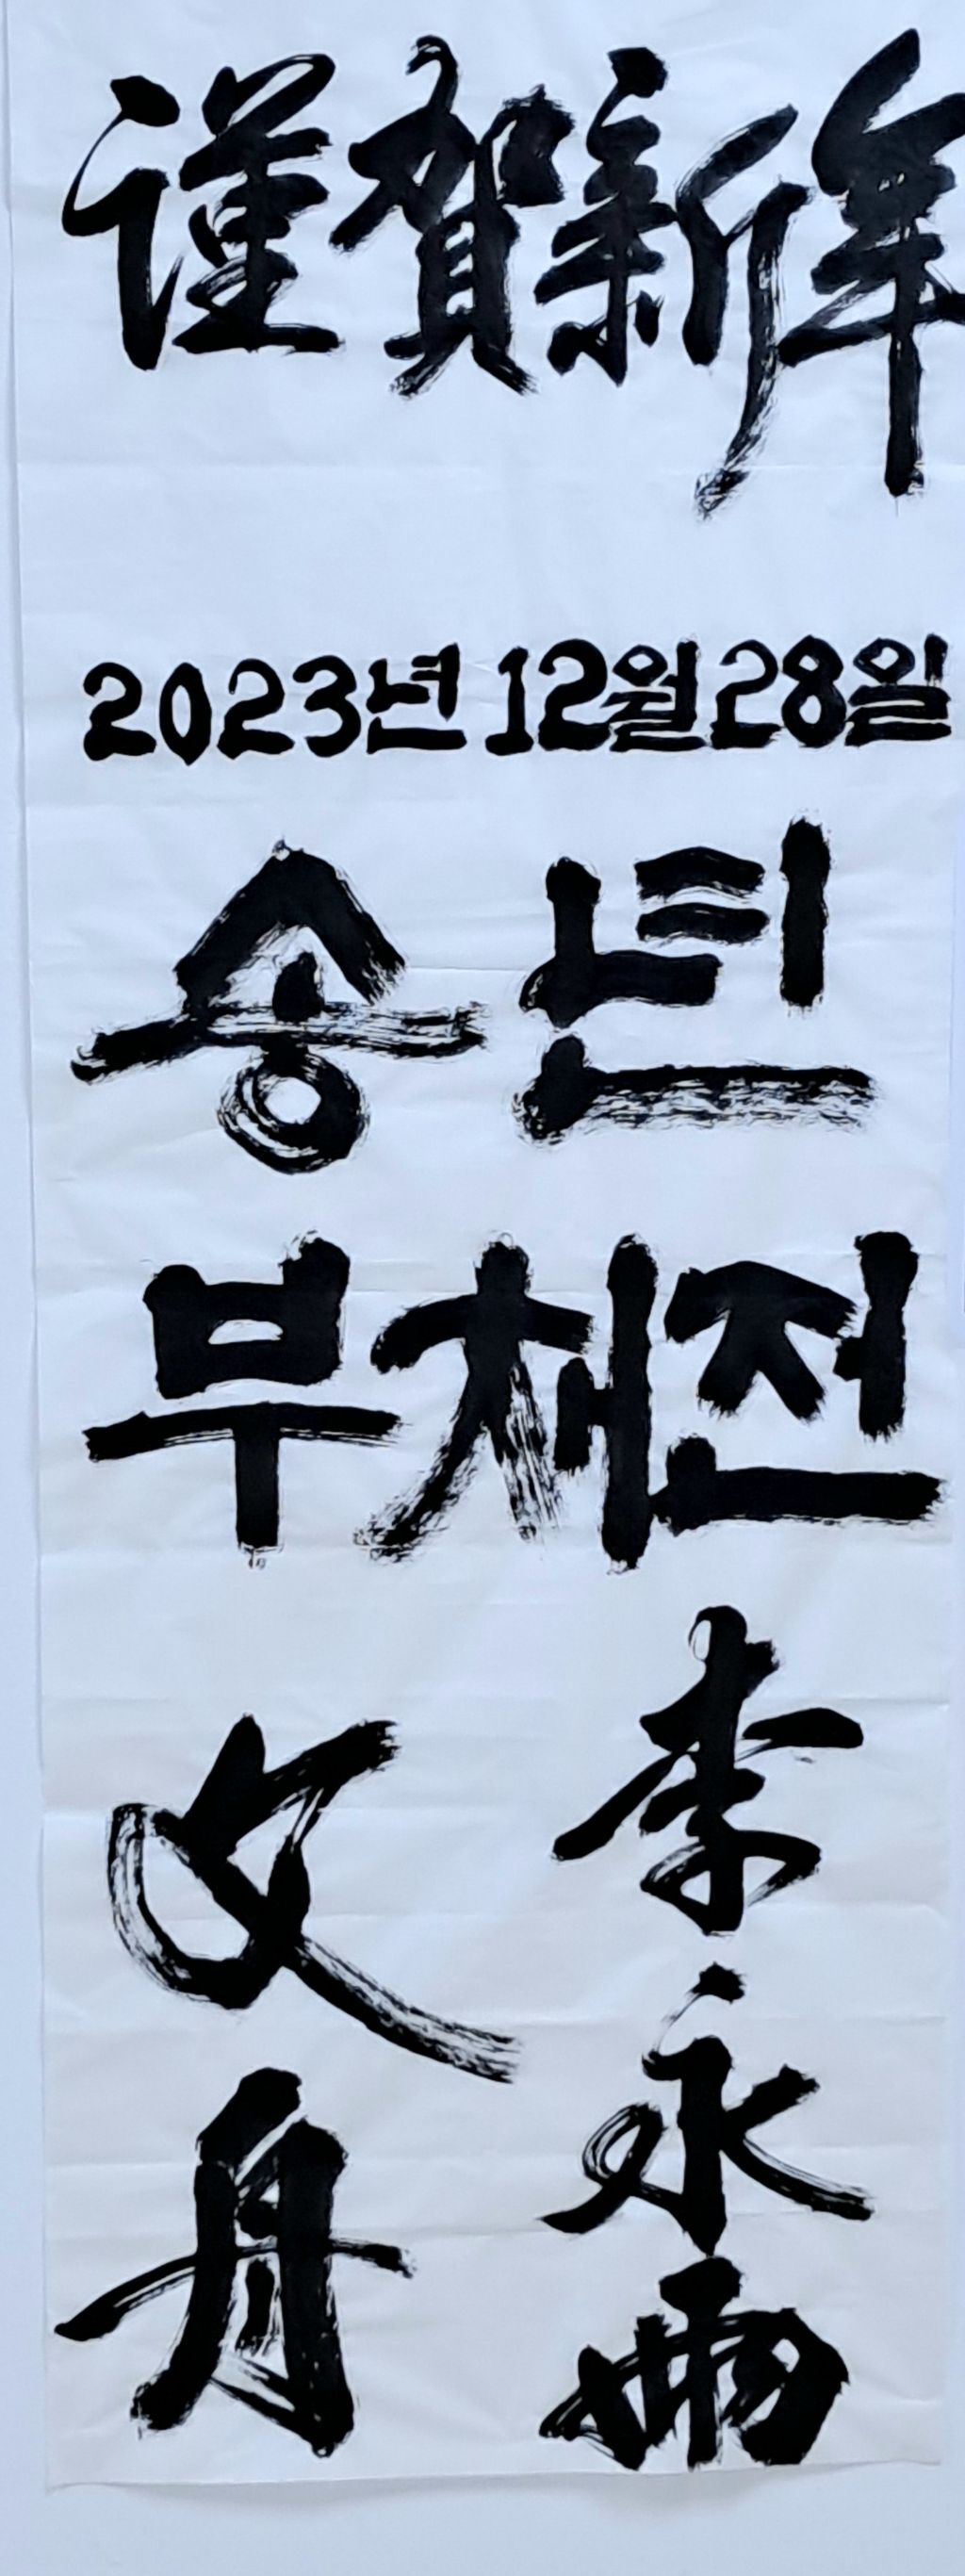 謹賀新年
2023년 12월 28일
송년
부채전
李永雨
文舟